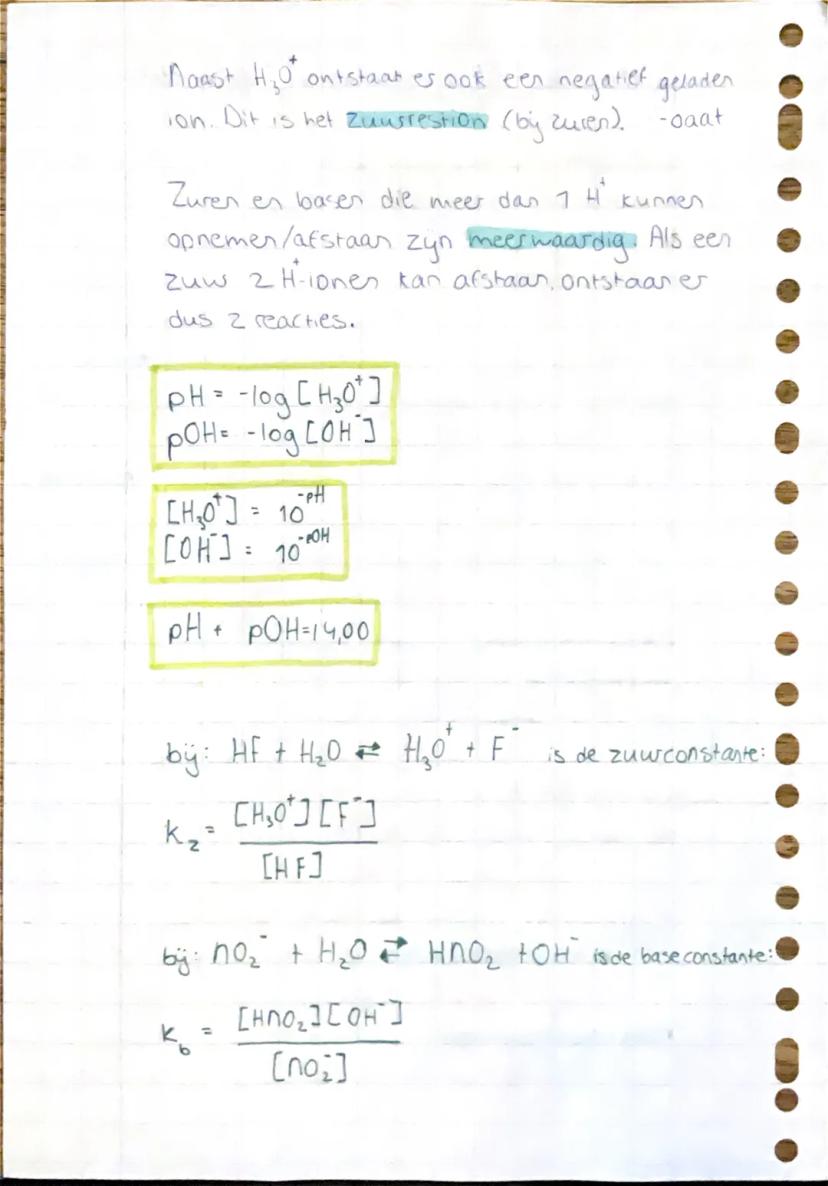 Naast H₃O⁺ ontstaat er ook een negatief geladen
ion. Dit is het zuurrestion (bij zuren). -oaat
Zuren en basen die meer dan 1 H⁺ kunnen
opnemen/afstaan zijn meerwaardig. Als een
zuur 2 H⁺-ionen kan afstaan, ontstaan er
dus 2 reacties.
pH = -log [H₃O⁺]
pOH = -log [OH⁻]
[H₃O⁺] = 10^-pH
[OH⁻] = 10^-pOH
pH + pOH = 14,00
bij: HF + H₂O ⇄ H₃O⁺ + F⁻ is de zuurconstante:
K_z = [H₃O⁺][F⁻]
[HF]
bij: NO₂⁻ + H₂O ⇄ HNO₂ + OH⁻ is de baseconstante:
K_b = [HNO₂][OH⁻]
[NO₂⁻]